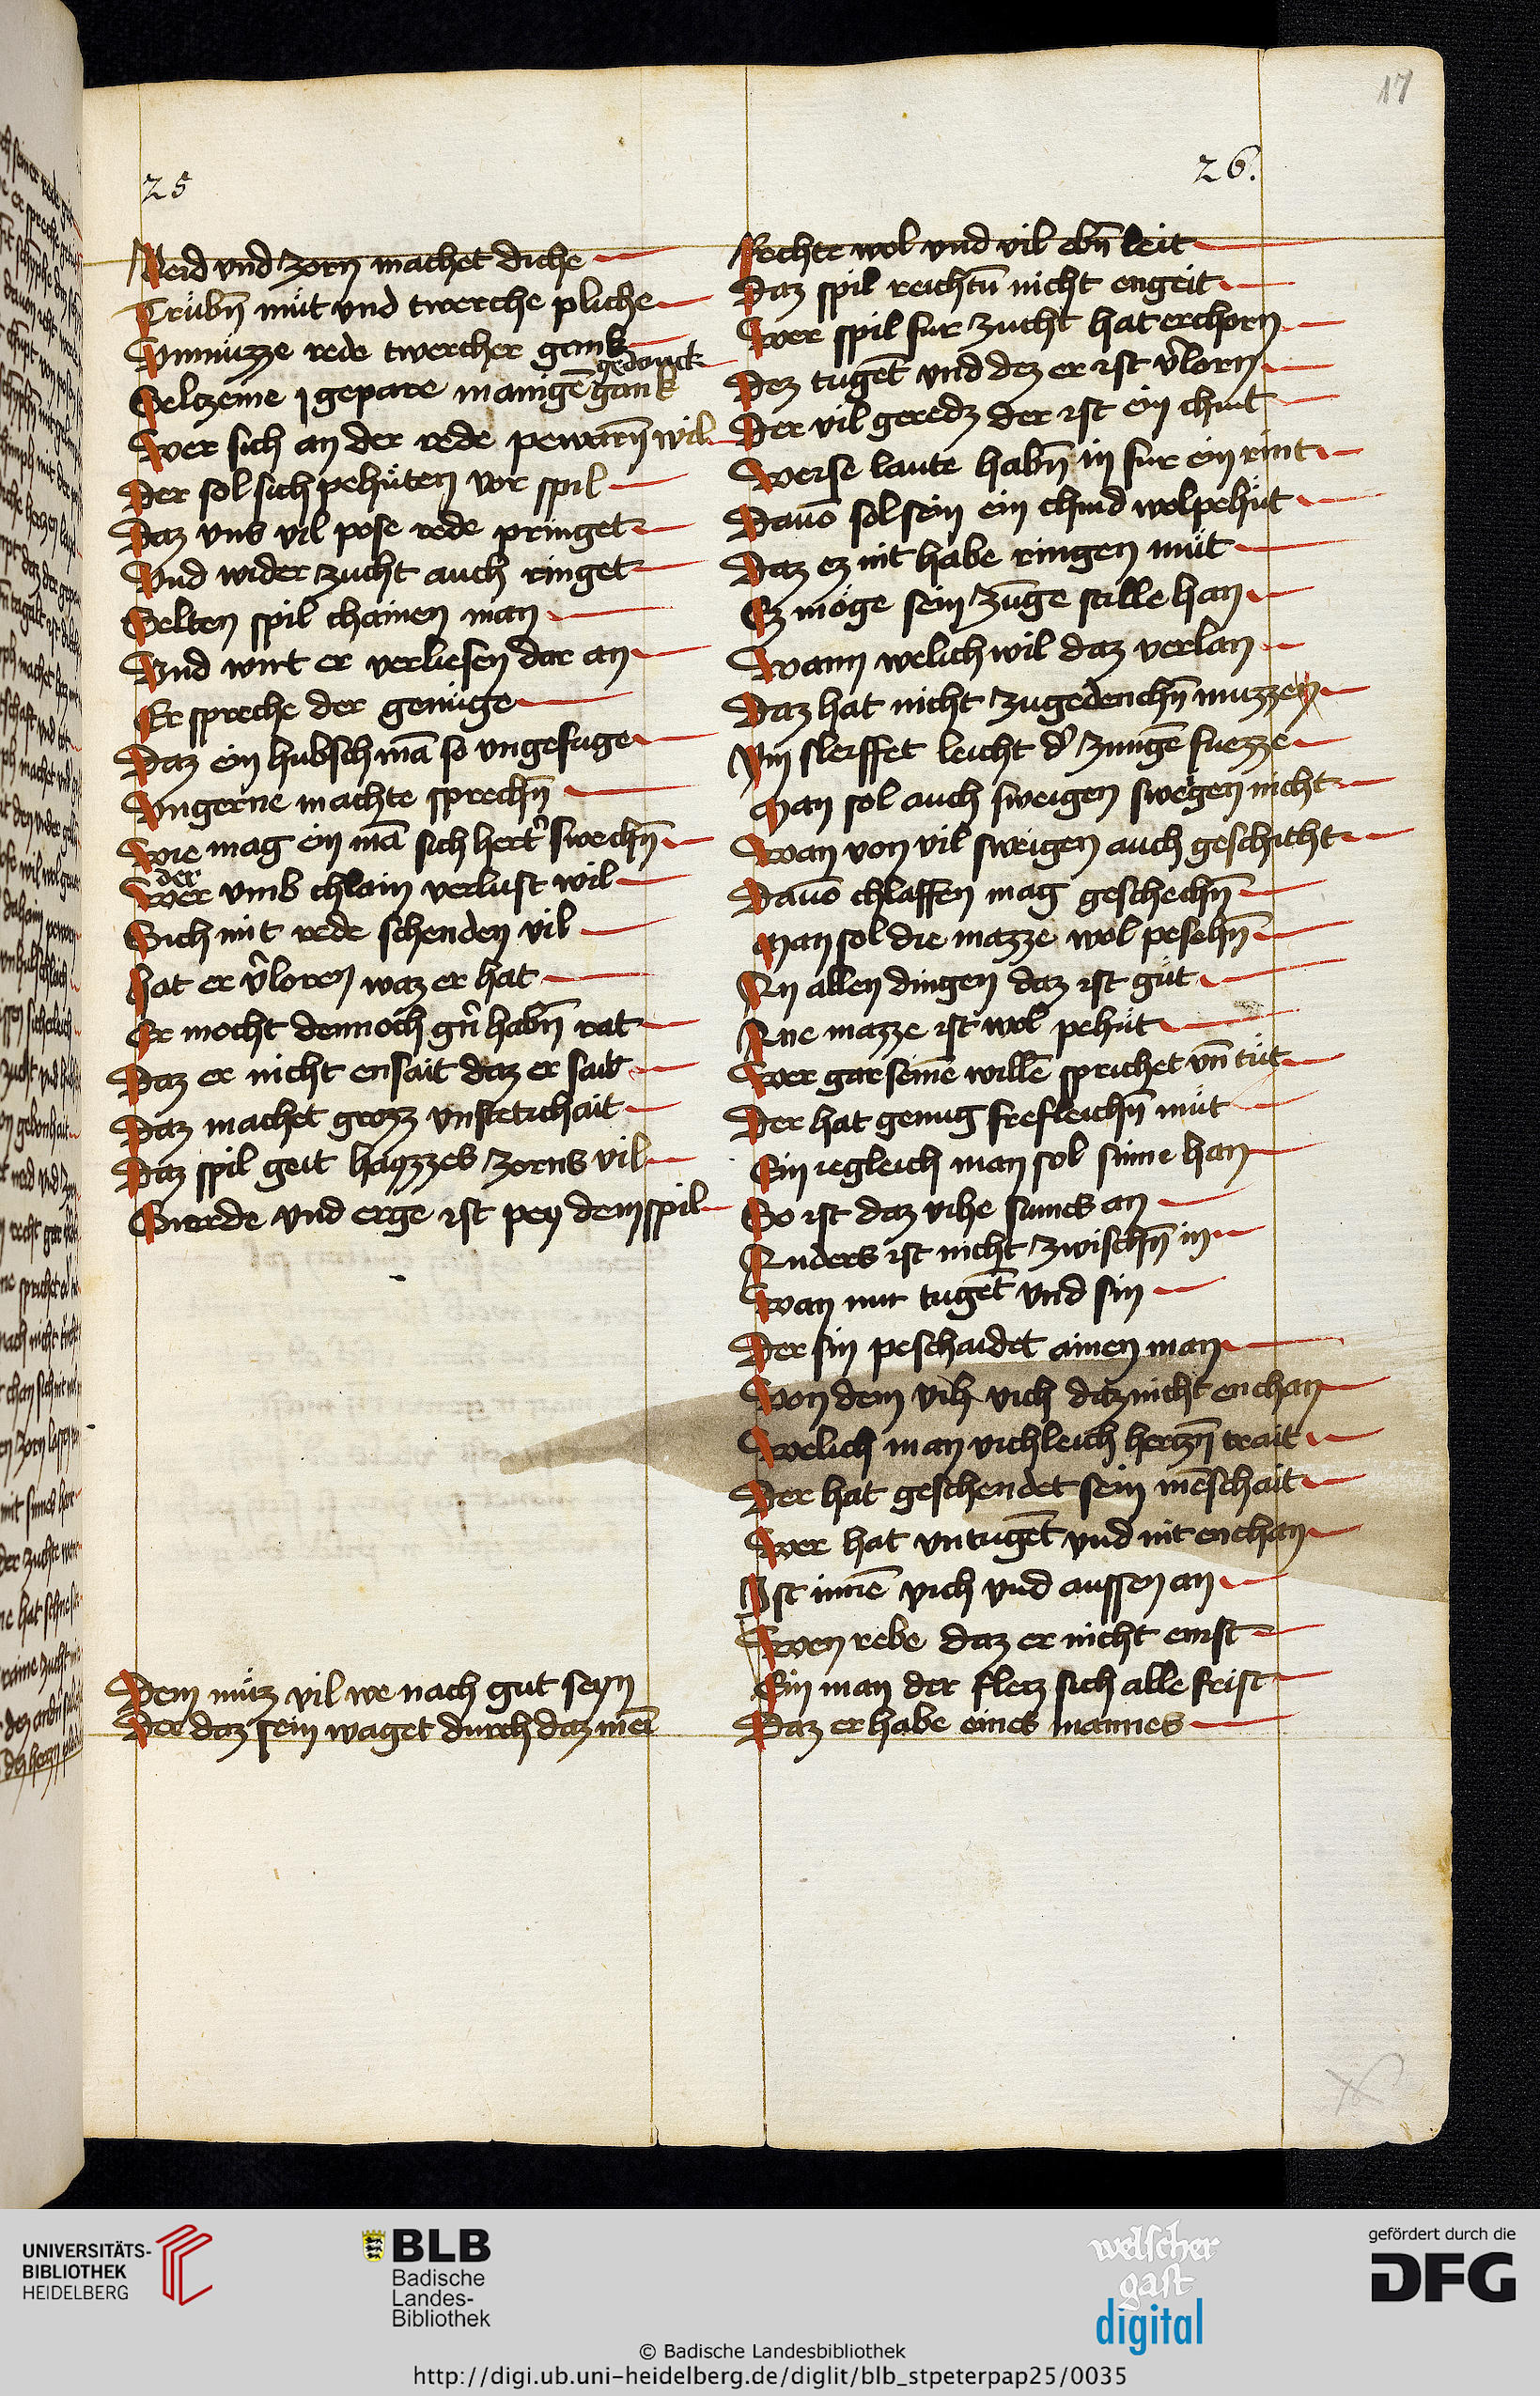 17
25
Neid vnd zorn machet diche
Trübn̄ müt vnd twerche pliche
Vnnüzze rede twercher gank
gedanck
Seltzeine gepare manigē gank
Wer sich an der rede pewarn̄ wil
Der sol sich pehüten vor spil
Daz vns vil pose rede pringet
Vnd wider zucht auch ringet
Selten spil chainen man
Vnd wirt er verliesen dar an
Er spreche der genüge
Daz ein hubsch mā so vngefuge
Vngerne machte sprechn̄
Wie mag ein mā sich hert' swechn̄
der
Wer vmb chlain verlust wil
Sich mit rede schenden vil
Hat er v'loren waz er hat
Er mocht dennoch gn' habn̄ rat
Daz er nicht ensait daz er sait
Daz machet grozz vnstetichait
Daz spil geit hazzes zorns vil
Swerde vnd erge ist pey dem spil
Dem müz vil we nach gut seyn
Der daz sein waget durch daz mei
26.
Rechte wol vnd vil ebn̄ leit
Daz spil reichtū nicht engeit
Wer spil fur zucht hat erchorn
Dez tugēt vnd dez er ist v'lorn
Der vil geredz der ist ein chint
Werse laute habn̄ in fur ein rint
Dauō sol sein ein chind wol pehüt
Daz ez nit habe ringen müt
Ez möge sein zunge stille han
Wann welich wil daz verlan
Daz hat nicht zugedenchn̄ muzzen
Im slerffet leicht d' zungē fuezze
Man sol auch sweigen swegen nicht
Wan von vil sweigen auch geschicht
Dauō chlaffen mag geschechn̄
Man sol die mazze wol pesehn̄
An allen dingen daz ist güt
Ane mazze ist wol pehüt
Wer gar seinē willē sprichet vn̄ tüt
Der hat genug frefleichn̄ müt
Ein iegleich man sol sinne han
So ist daz vihe sinnes an
Anders ist nicht zwischn̄ in
Wan nur tugēt vnd sin
Der sin peschaidet ainen man
Von dem vih vich daz nicht enchan
Welich man vichleich hertzn̄ trait
Der hat geschendet sein mēschait
Wer hat vntugēt vnd nit enchan
Ist innē vich vnd aussen an
Wen rebe daz er nicht enist
Ein man der fleiz sich alle frist
Daz er habe eines mannes
UNIVERSITÄTS-
BIBLIOTHEK
HEIDELBERG
BLB
Badische
Landes-
Bibliothek
welscher
gast
digital
gefördert durch die
DFG
© Badische Landesbibliothek
http://digi.ub.uni-heidelberg.de/diglit/blb_stpeterpap25/0035